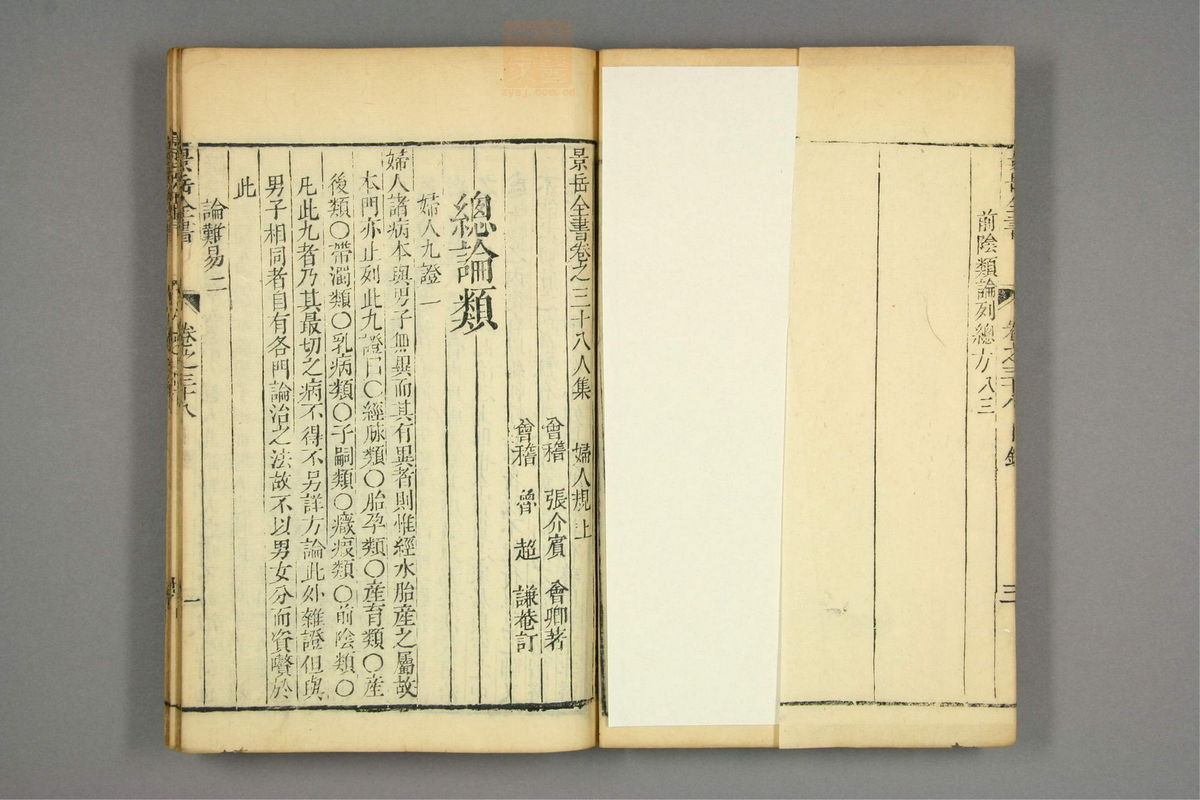 前陰類論列總方 八三
三
景岳全書卷之三十八人集 婦人規上
會稽 張介賓 會卿著
會稽 魯 超 謙菴訂
總論類
婦人九證 一
婦人諸病本與男子無異而其有異者則惟經水胎產之屬故
本門亦止列此九證曰○經脉類○胎孕類○產育類○產
後類○帶濁類○乳病類○子嗣類○癥瘕類○前陰類○
凡此九者乃其最切之病不得不另詳方論此外雜證但與
男子相同者自有各門論治之法故不以男女分而資贅於
此
論難易 二
景岳全書 卷之三十八 一
zysj.com.cn